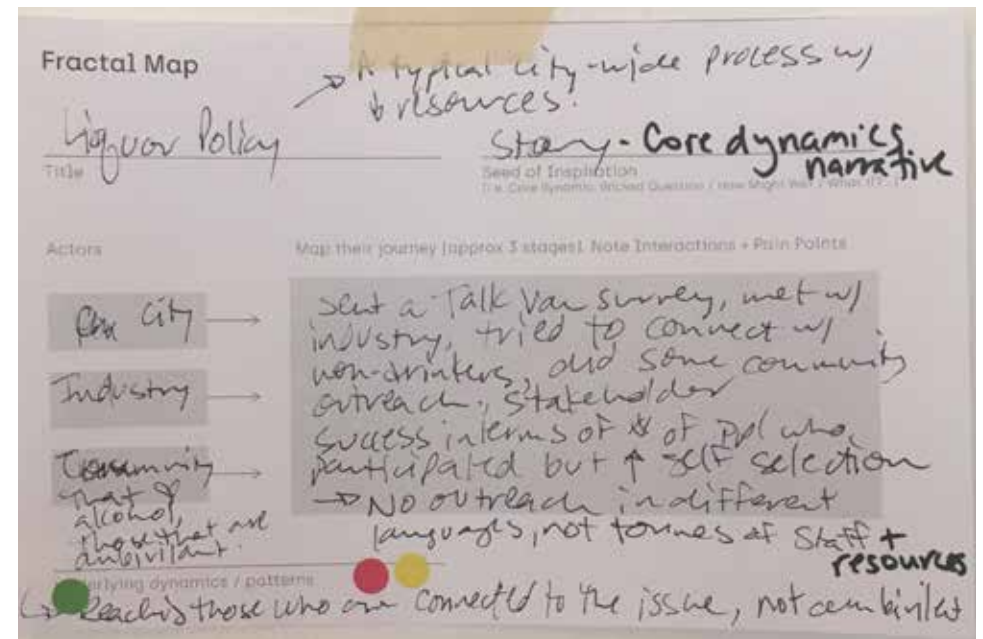 Fractal Map
→ A typical city-wide process w/
↓ resources.
Liquor Policy
Story - Core dynamics
narrative
Title
Seed of Inspiration
Actors
Map their journey (approx 3 stages). Note Interactions + Pain Points
City →
Industry →
Community →
that
alcohol,
those that are
ambivilant.
sent a Talk Van survey, met w/
industry, tried to connect w/
non-drinkers, did some community
outreach, stakeholder
success in terms of # of ppl who
participated but ↑ self selection
→ No outreach in different
languages, not tonnes of staff +
resources
Underlying dynamics / patterns
↳ Reaches those who are connected to the issue, not ambivilent